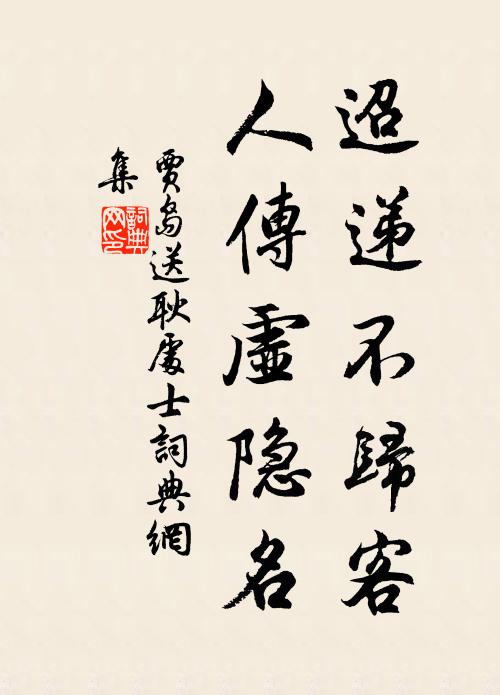 迢递不歸客
人傳虛隐名
賈島送耿處士詞典網
集
詞典
网印